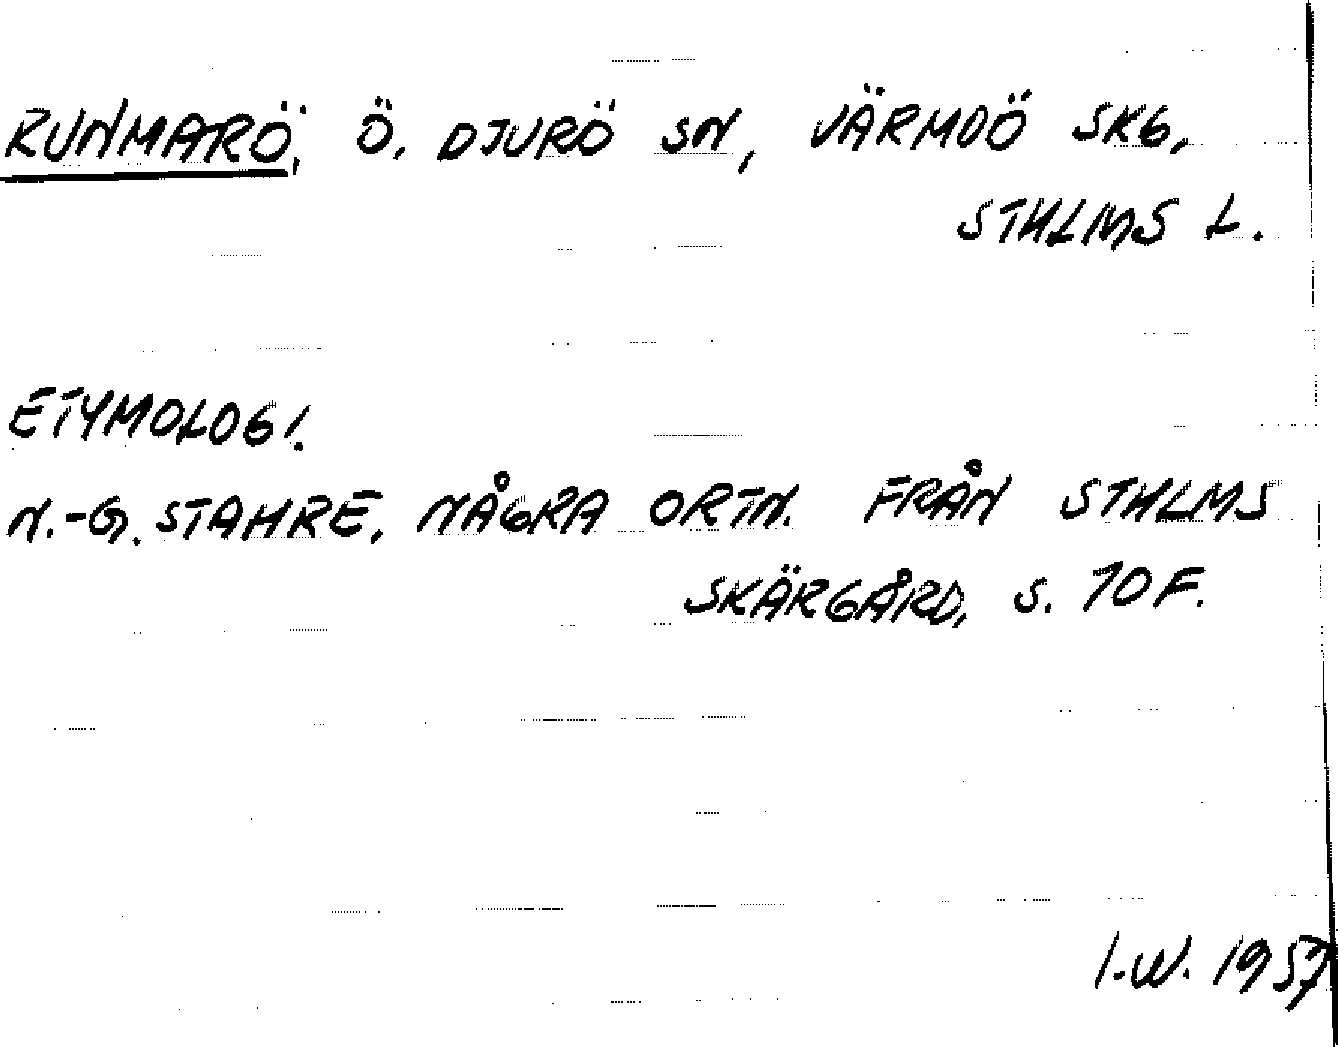 RUNMARÖ, Ö, DJURÖ SN, VÄRMDÖ SKG,
STHLMS L.
ETYMOLOGI.
N.-G. STAHRE, NÅGRA ORTN. FRÅN STHLMS
SKÄRGÅRD, S. 70 F.
I.W. 1957